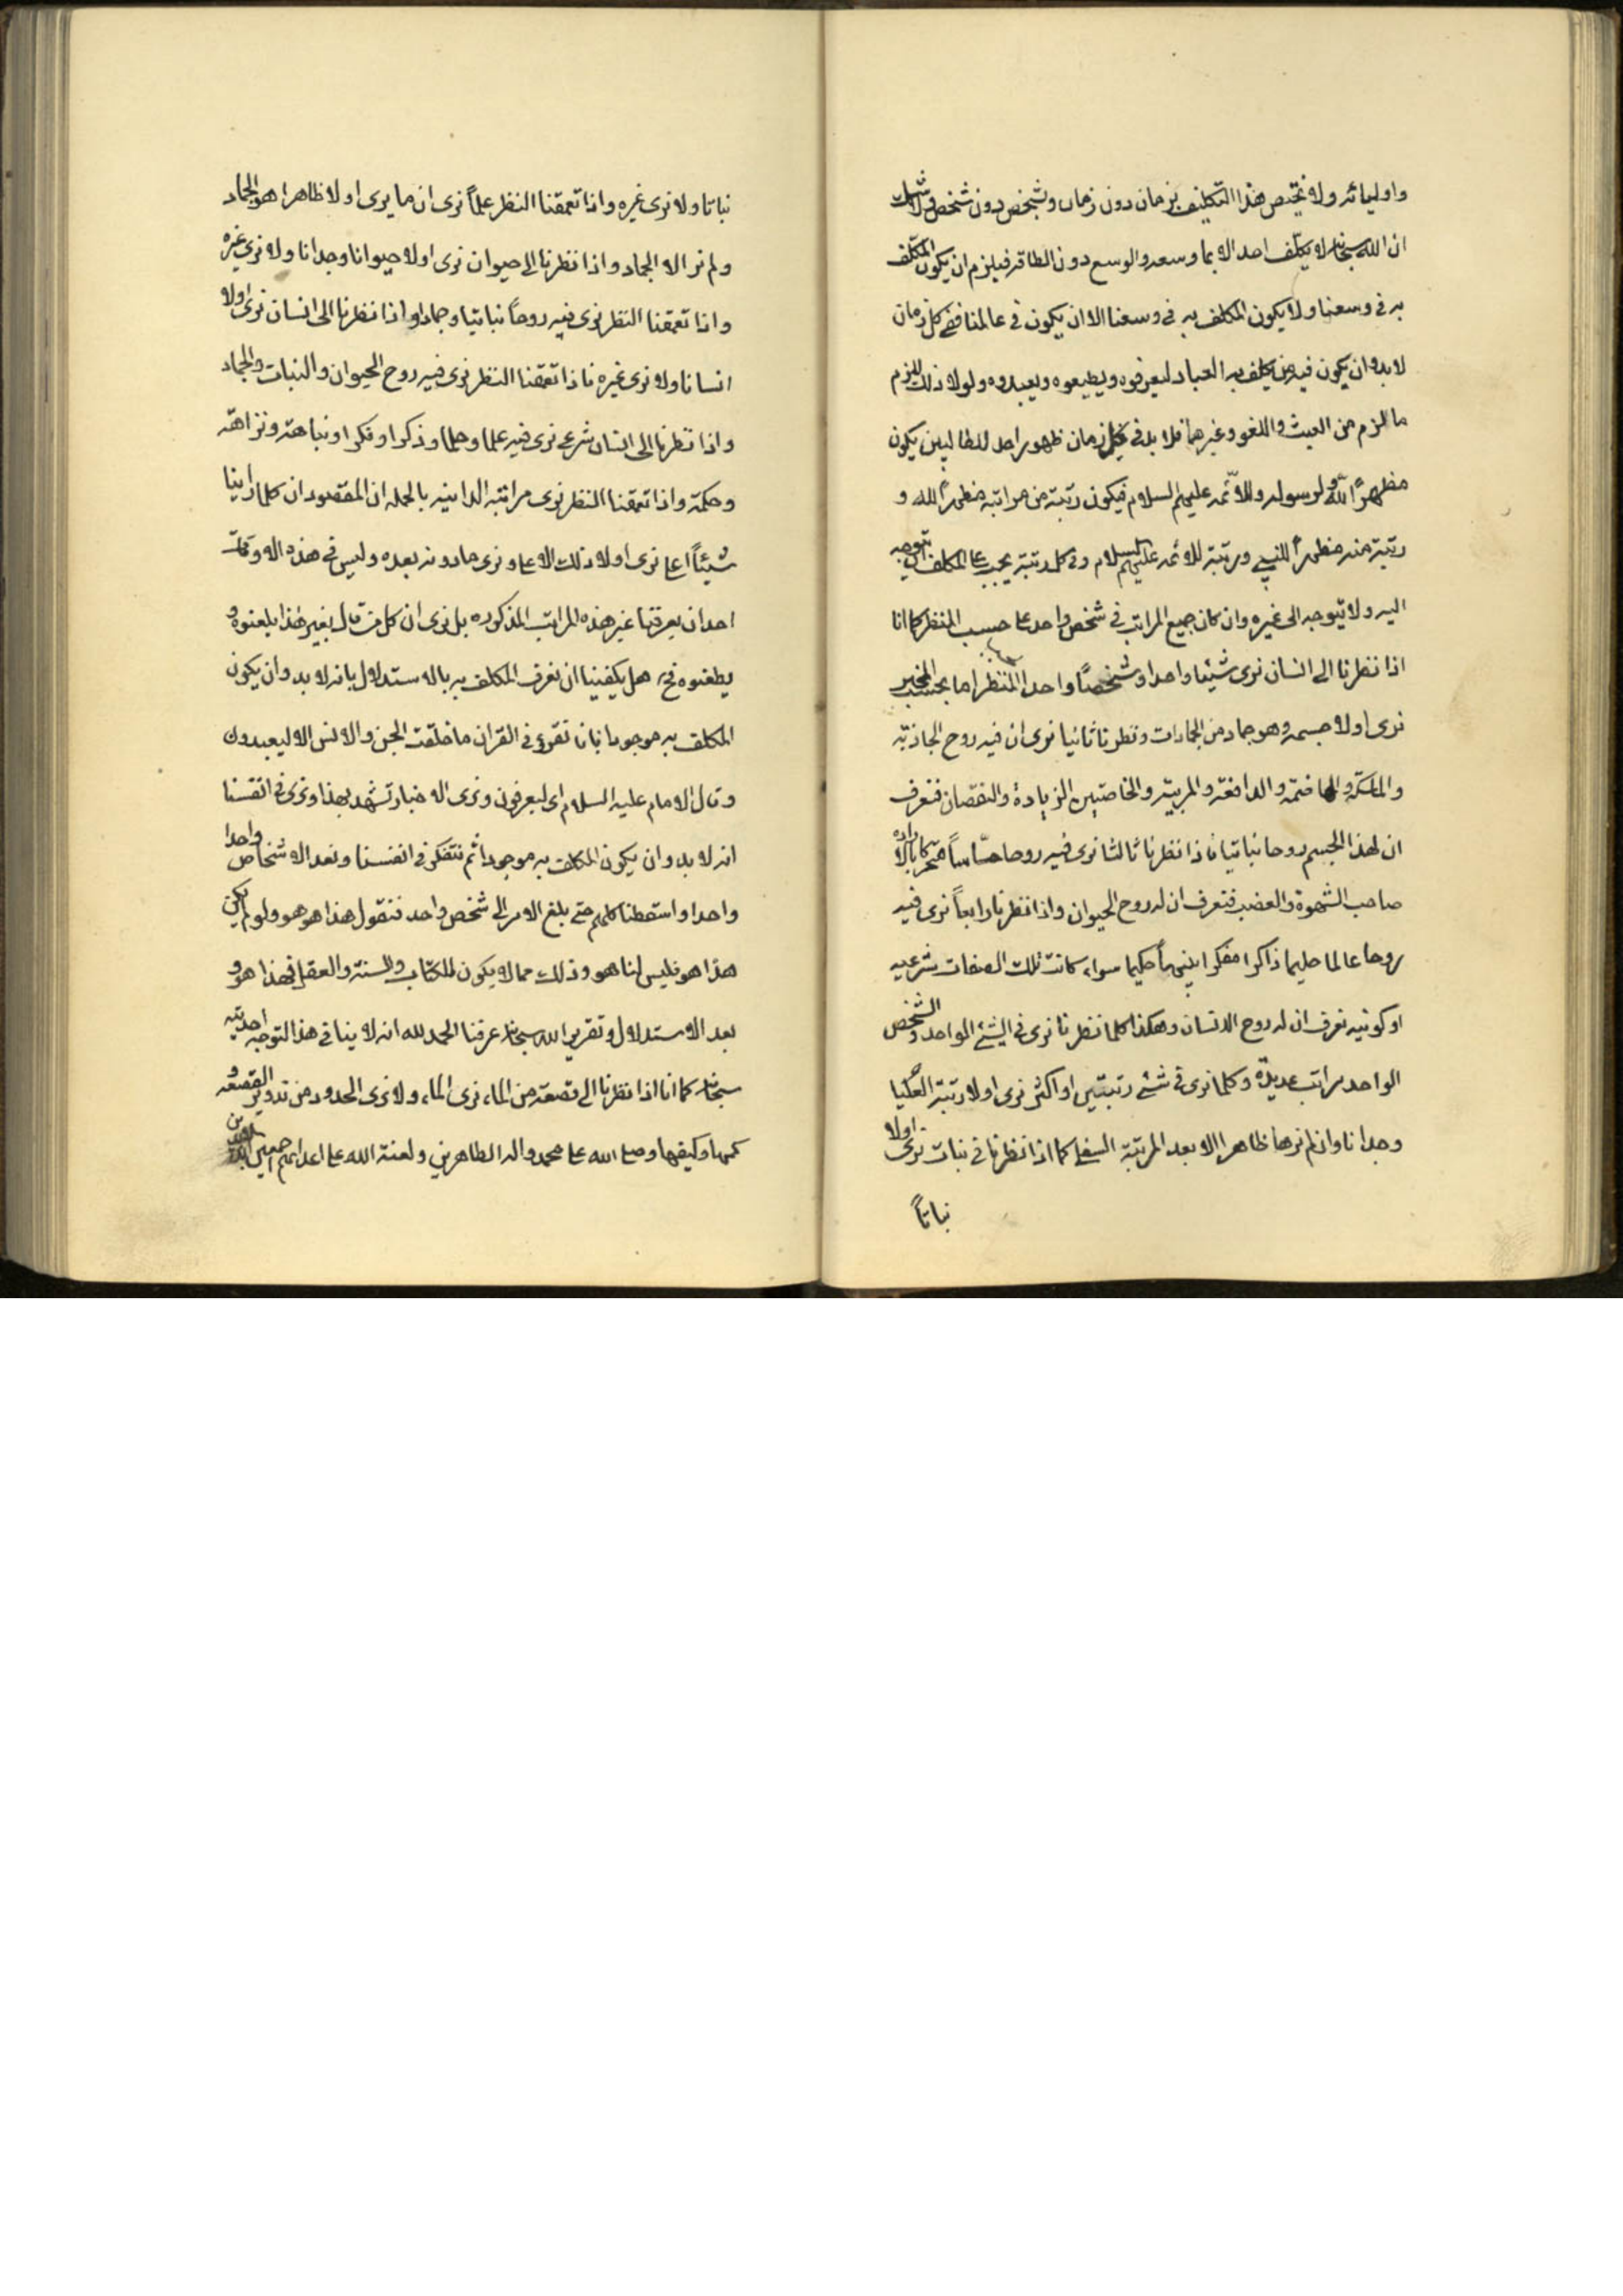 واوليائه ولا يختص هذا التكليف بزمان دون زمان وشخص دون شخص ولا شك
ان الله سبحانه لا يكلف احدا الا بما وسعه والوسع دون الطاقة فيلزم ان يكون المكلف
به في وسعنا ولا يكون المكلف به في وسعنا الا ان يكون في عالمنا ففي كل زمان
لابد وان يكون فيه من يكلف به العباد ليعرفوه ويطيعوه ويعبدوه ولولا ذلك للزم
ما لزم من العبث واللغو وغيرهما فلا بد في كل زمان ظهور واحد للطالبين يكون
مظهراً لله ولرسوله وللائمه عليهم السلام فيكون رتبة من مراتبه مظهراً لله و
رتبة منه مظهراً للنبي ورتبة للائمه عليهم السلام وفي كل رتبة يجب على المكلف ان يتوجه
اليه ولا يتوجه الى غيره وان كان جميع المراتب في شخص واحد على حسب المنظر كما انا
اذا نظرنا الى انسان نرى شيئا واحدا وشخصاً واحدا المنظر اما بحسب المخبر
نرى اولا جسمه وهو جماد من الجمادات ونظرنا ثانيا نرى ان فيه روح الجاذبة
والماسكة والهاضمة والدافعة والمربية والخاصتين الزيادة والنقصان فنعرف
ان لهذا الجسم روحا نباتيا فاذا نظرنا ثالثا نرى فيه روحا حساساً متحركا بالاراده
صاحب الشهوة والغضب فنعرف ان له روح الحيوان واذا نظرنا رابعاً نرى فيه
روحا عالما حليما ذاكرا مفكرا نبيهاً حكيما سواء كانت تلك الصفات شرعيه
او كونيه نعرف ان له روح الانسان وهكذا كلما نظرنا نرى في الشئ الواحد والشخص
الواحد مراتب عديدة وكلما نرى في شئ رتبتين او اكثر نرى اولا رتبة العليا
وجدانا وان لم نرها ظاهرا الا بعد المرتبة السفلى كما اذا نظرنا في نبات نرى اولا
نباتاً
نباتا ولا نرى غيره واذا تعمقنا النظر علماً نرى ان ما يرى اولا ظاهرا هو الجماد
ولم نر الا الجماد واذا نظرنا الى حيوان نرى اولا حيوانا وجدانا ولا نرى غيره
واذا تعمقنا النظر نرى فيه روحاً نباتيا وجمادا واذا نظرنا الى انسان نرى اولا
انسانا ولا نرى غيره فاذا تعمقنا النظر نرى فيه روح الحيوان والنبات والجماد
واذا نظرنا الى انسان شرعي نرى فيه علما وحلما وذكرا وفكرا ونباهة ونزاهة
وحكمة واذا تعمقنا النظر نرى مراتبه الدانيه بالجمله ان المقصود ان كلما راينا
شيئاً اعلى نرى اولا ذلك الاعلى ونرى مادونه بعده وليس في هذه الاوقات
احد ان يعرفنا غير هذه المراتب المذكوره بل نرى ان كل من قال بغير هذا يلعنوه و
يطعنوه فح هل يكفينا ان نعرف المكلف به بالاستدلال بانه لابد وان يكون
المكلف به موجودا بانا نقرؤ في القران ما خلقت الجن والانس الا ليعبدون
وقال الامام عليه السلام اي ليعرفون ونرى الاخبار تشهد بهذا ونرى في انفسنا
انه لابد وان يكون المكلف به موجودا ثم نتفكر في انفسنا ونعد الاشخاص واحدا
واحدا واسقطنا كلهم حتى بلغ الامر الى شخص واحد فنقول هذا هو هو ولو لم يكن
هذا هو فليس لنا هو وذلك مما لا يكون للكتاب والسنة والعقل فهذا هو و
بعد الاستدلال وتقرير الله سبحانه عرفنا الحمد لله انه لا ينافي هذا التوجه احديته
سبحانه كما انا اذا نظرنا الى قصعة من الماء نرى الماء ولا نرى الحدود من تدوير القصعه و
كمها وكيفها وصلى الله على محمد واله الطاهرين ولعنة الله على اعدائهم اجمعين